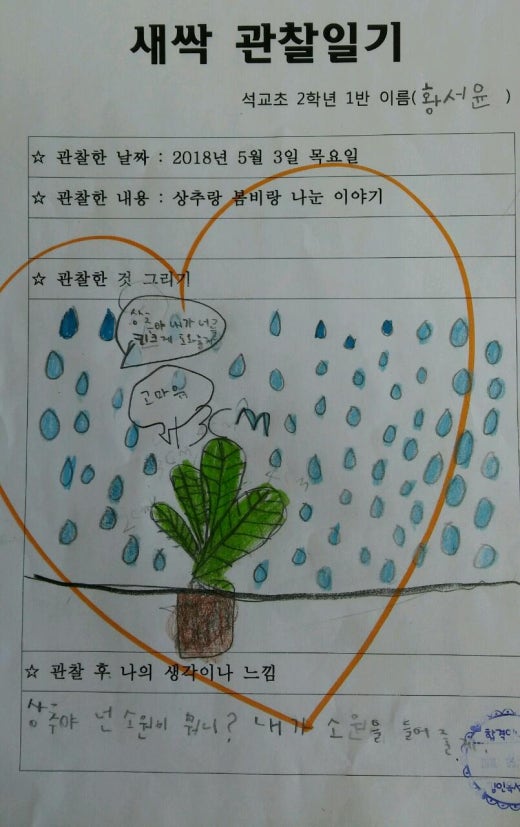 새싹 관찰일기
석교초 2학년 1반 이름( 황서윤 )
☆ 관찰한 날짜 : 2018년 5월 3일 목요일
☆ 관찰한 내용 : 상추랑 봄비랑 나눈 이야기
☆ 관찰한 것 그리기
내가 너를
키크게 도와줄게
고마워
3CM
☆ 관찰 후 나의 생각이나 느낌
상추야 넌 소원이 뭐니? 내가 소원을 들어줄